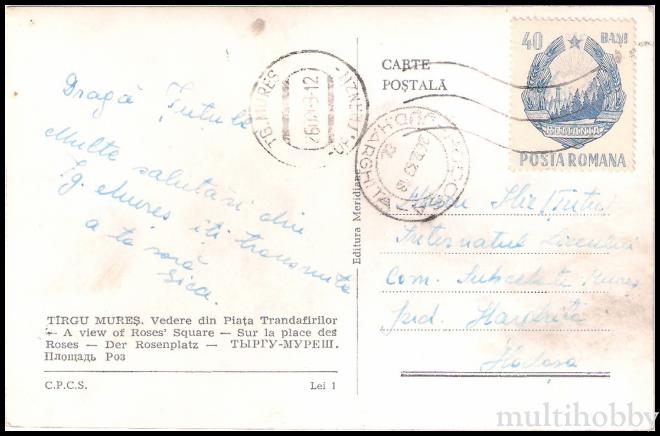 CARTE
POȘTALĂ
40 BANI
ROMANIA
POSTA ROMANA
TG. MUREȘ
JUD. HARGHITA
Dragă Țuțule
Multe salutări din
Tg. Mureș îți transmite
a ta soră
Sica.
Internatul Liceului
Com. Subcetate Mureș
jud. Harghita
Hodoșa
Editura Meridiane
TÎRGU MUREȘ. Vedere din Piața Trandafirilor
— A view of Roses' Square — Sur la place des
Roses — Der Rosenplatz — ТЫРГУ-МУРЕШ.
Площадь Роз
C.P.C.S. Lei 1
multihobby